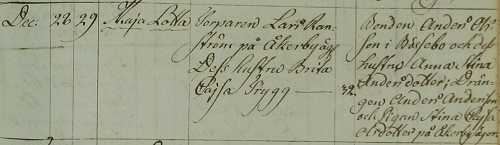 Dec. 28 29 Maja Lotta Torparen Lars Ran-
ström på Åkerby äg
Dess hustru Brita
Cajsa Trygg — 32.
Bonden Anders Ols-
son i Båssebo och dess
hustru Anna Stina
Andersdotter; Drän-
gen Anders Anderson
och Pigan Stina Cajsa
dotter på Åkerby ägor.